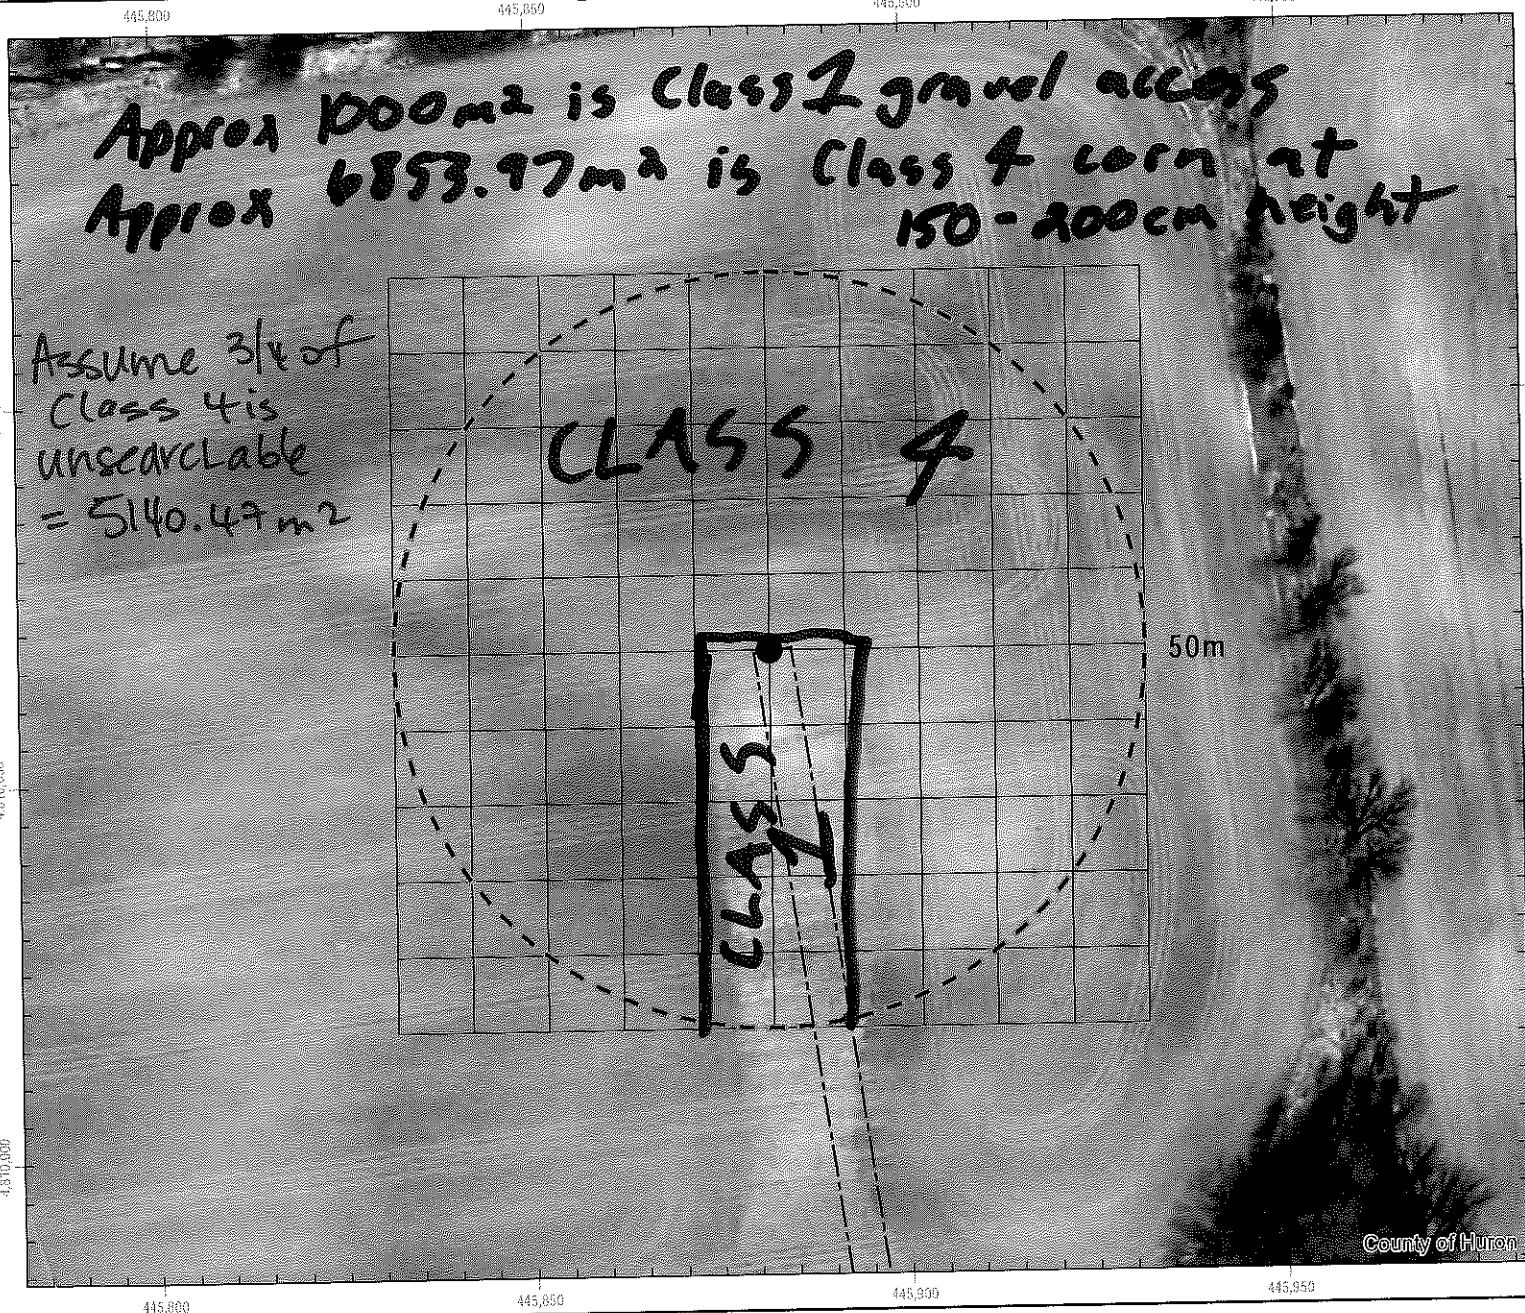 445,800
445,850
Approx 1000m2 is Class 1 gravel access
Approx 6853.97m2 is Class 4 corn at
150-200cm height
Assume 3/4 of
Class 4 is
unsearchable
= 5140.47m2
CLASS 4
50m
CLASS 1
4,810,000
County of Huron
445,800
445,850
445,900
445,950